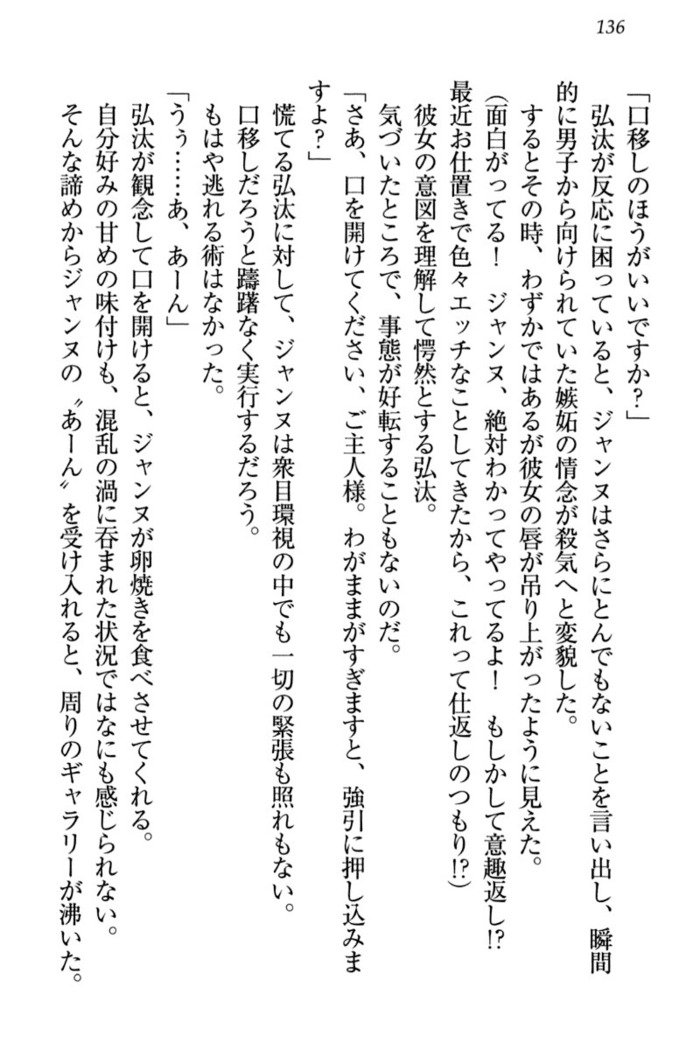 136
「口移しのほうがいいですか？」
弘汰が反応に困っていると、ジャンヌはさらにとんでもないことを言い出し、瞬間
的に男子から向けられていた嫉妬の情念が殺気へと変貌した。
するとその時、わずかではあるが彼女の唇が吊り上がったように見えた。
（面白がってる！　ジャンヌ、絶対わかってやってるよ！　もしかして意趣返し!?
最近お仕置きで色々エッチなことしてきたから、これって仕返しのつもり!?）
彼女の意図を理解して愕然とする弘汰。
気づいたところで、事態が好転することもないのだ。
「さあ、口を開けてください、ご主人様。わがままがすぎますと、強引に押し込みま
すよ？」
慌てる弘汰に対して、ジャンヌは衆目環視の中でも一切の緊張も照れもない。
口移しだろうと躊躇なく実行するだろう。
もはや逃れる術はなかった。
「うぅ……あ、あーん」
弘汰が観念して口を開けると、ジャンヌが卵焼きを食べさせてくれる。
自分好みの甘めの味付けも、混乱の渦に呑まれた状況ではなにも感じられない。
そんな諦めからジャンヌの〝あーん〟を受け入れると、周りのギャラリーが沸いた。